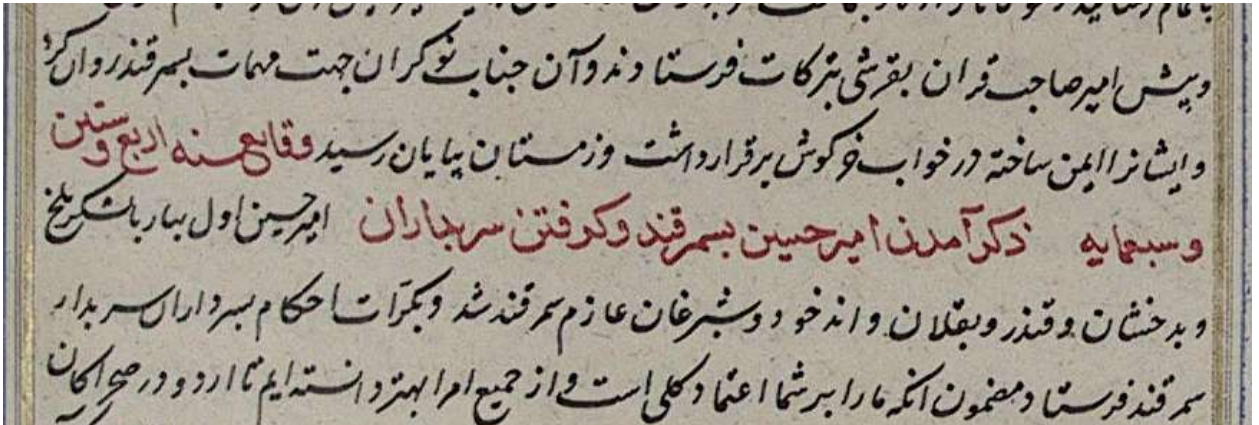 و پیش امیر صاحب قران بقرشی تبرکات فرستادند و آن جناب نوکران جهت مهمات بسمرقند روان کرد
و ایشانرا ایمن ساخته در خواب خرکوش برقرار داشت و زمستان بپایان رسید وقایع سنه اربع و ستین
و سبعمایه ذکر آمدن امیر حسین بسمرقند و کرفتن سربداران امیر حسین اول بهار با لشکر بلخ
و بدخشان و قندز و بقلان و اندخود و شبرغان عازم سمرقند شد و بکرّات احکام بسرداران سربدار
سمرقند فرستاد مضمون انکه ما را بر شما اعتماد کلی است و از جمیع امرا بهتر دانسته ایم تا اردو در صحرا کان